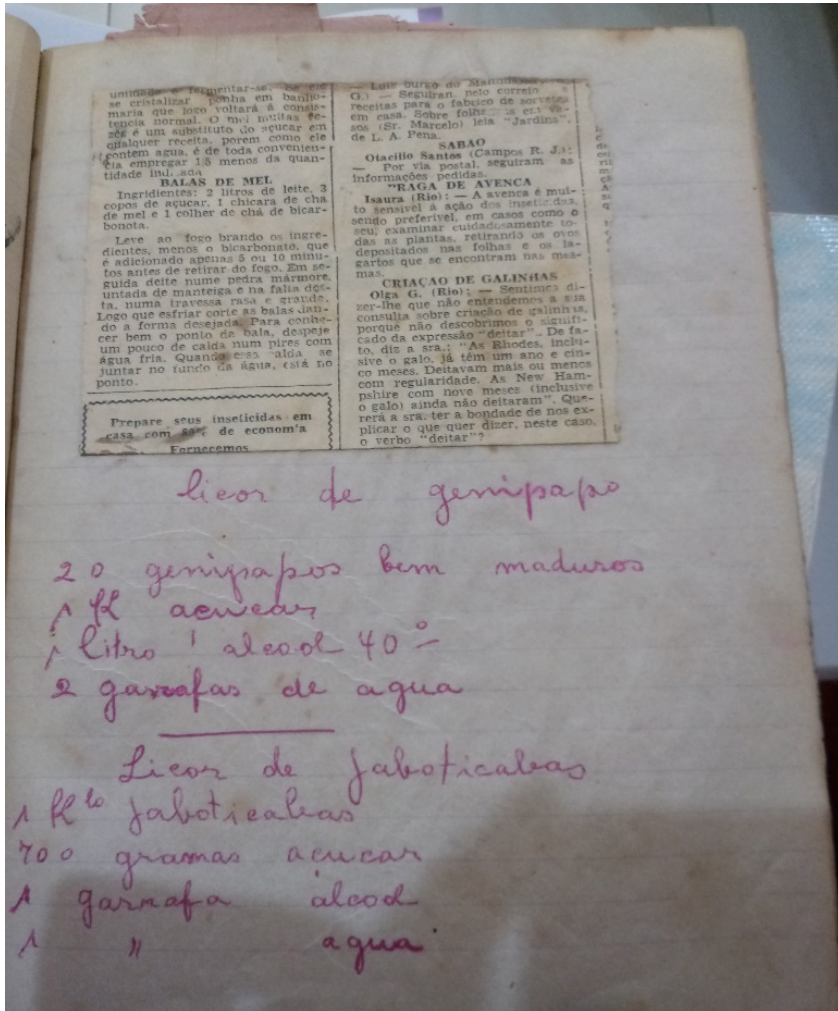 unidade e fermentar-se. Se ele
se cristalizar ponha em banho-
maria que logo voltará á consis-
tencia normal. O mel muitas ve-
zes é um substituto do açucar em
qualquer receita, porem como ele
contem agua, é de toda convenien-
cia empregar 1|5 menos da quan-
tidade indicada
BALAS DE MEL
Ingridientes: 2 litros de leite, 3
copos de açucar, 1 chicara de cha
de mel e 1 colher de chá de bicar-
bonota.
Leve ao fogo brando os ingre-
dientes, menos o bicarbonato, que
é adicionado apenas 5 ou 10 minu-
tos antes de retirar do fogo. Em se-
guida deite nume pedra mármore,
untada de manteiga e na falta des-
ta, numa travessa rasa e grande.
Logo que esfriar corte as balas dan-
do a forma desejada. Para conhe-
cer bem o ponto de bala, despeje
um pouco de calda num pires com
água fria. Quando essa calda se
juntar no fundo da água, está no
ponto.
Prepare seus inseticidas em
casa com 80% de econom'a
Fornecemos
G.) — Seguiran, pelo correio
receitas para o fabrico de sorvetes
em casa. Sobre folhagens em va-
sos (Sr. Marcelo) leia "Jardins",
de L. A. Pena.
SABAO
Otacilio Santos (Campos R. J.):
— Por via postal, seguiram as
informações pedidas.
"RAGA DE AVENCA
Isaura (Rio): — A avenca é mui-
to sensivel á ação dos inseticidas,
sendo preferivel, em casos como o
seu, examinar cuidadosamente to-
das as plantas, retirando os ovos
depositados nas folhas e os la-
gartos que se encontram nas mes-
mas.
CRIAÇAO DE GALINHAS
Olga G. (Rio): — Sentimos di-
zer-lhe que não entendemos a sua
consulta sobre criação de galinhas,
porquê não descobrimos o signifi-
cado da expressão "deitar". De fa-
to, diz a sra.: "As Rhodes, inclu-
sive o galo, já têm um ano e cin-
co meses. Deitavam mais ou menos
com regularidade. As New Ham-
pshire com nove meses (inclusive
o galo) ainda não deitaram". Que-
rerá a sra. ter a bondade de nos ex-
plicar o que quer dizer, neste caso,
o verbo "deitar"?
Licor de genipapo
20 genipapos bem maduros
1 K açucar
1 litro alcool 40º
2 garrafas de agua
Licor de Jaboticabas
1 Klo Jaboticabas
700 gramas açucar
1 garrafa alcool
1 " agua